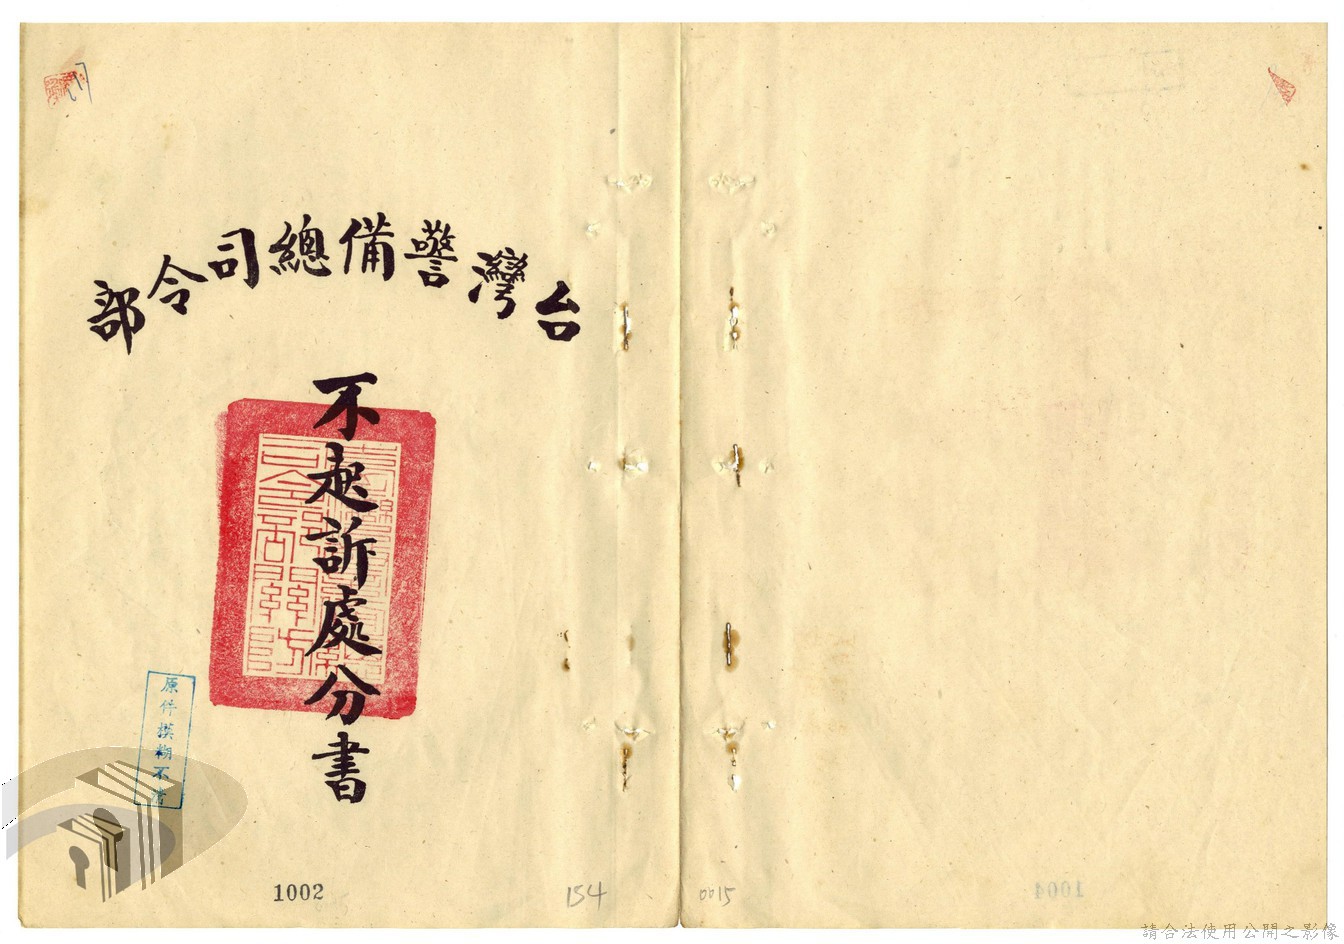 台灣警備總司令部
不起訴處分書
原件模糊不清
1002
154
0015
1004
請合法使用公開之影像